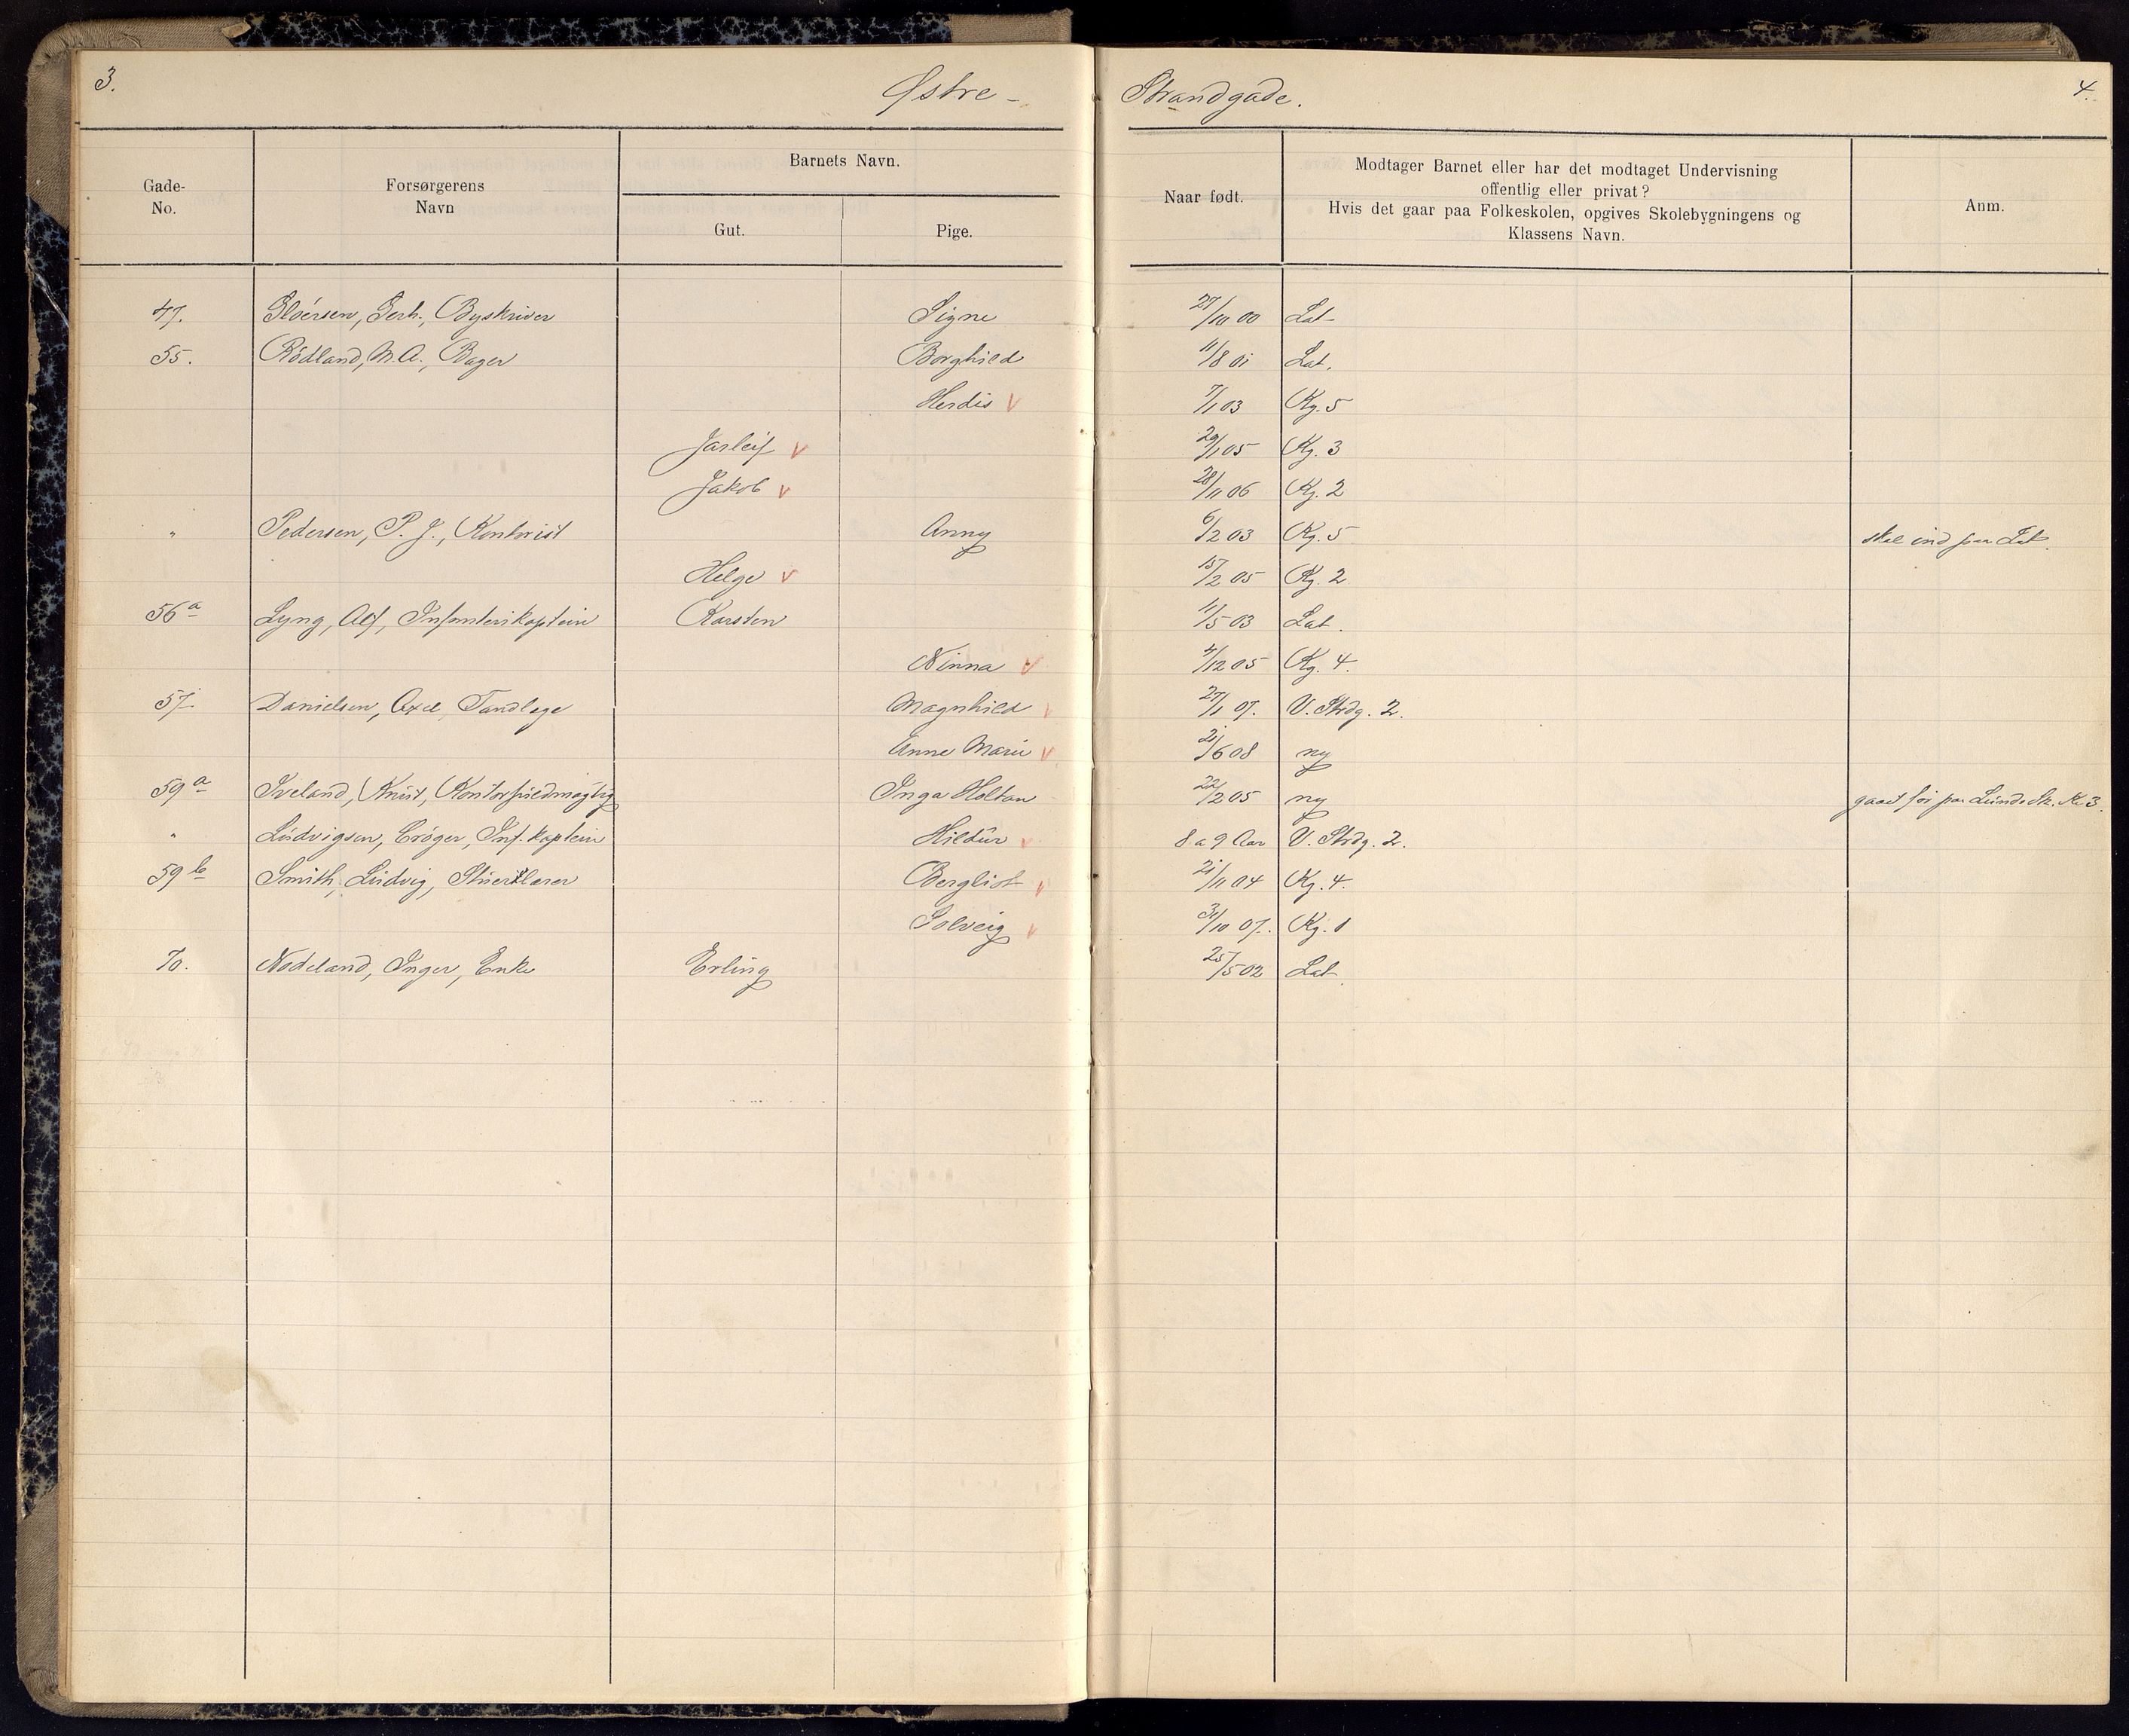 3.
Østre - Strandgade.
4.
Gade-No.
Forsørgerens Navn
Barnets Navn.
Gut.
Pige.
Naar født.
Modtager Barnet eller har det modtaget Undervisning
offentlig eller privat?
Hvis det gaar paa Folkeskolen, opgives Skolebygningens og
Klassens Navn.
Anm.
47. Gloersen, Gerh., Byskriver Signe 27/10 00 Lat
55. Rödland, M.A., Bager Borghild 11/8 01 Lat.
Herdis V 7/1 03 Kg. 5
Jarleif V 29/1 05 Kg. 3
Jakob V 28/11 06 Kg. 2
" Pedersen, P. J., Kontorist Anny 6/2 03 Kg. 5 skal ind paa Lat.
Helge V 15/2 05 Kg. 2
56 a Lyng, Alf, Infanterikaptein Karsten 11/5 03 Lat.
Ninna V 4/12 05 Kg. 4.
57. Danielsen, Axel Tandlæge Magnhild V 27/1 07. V. Strdg. 2.
Anne Marie V 21/6 08 ny
59 a Iveland, Knut, Kontorfuldmægtig Inga Holtan 22/2 05 ny gaat før paa Lunds Sk. K. 3.
" Ludvigsen, Crøger, Inf. kaptein Hildur V 8 a 9 Aar V. Strdg. 2.
59 b Smith, Ludvig, Bergliot V 21/11 04 Kg. 4.
Solveig V 31/10 07. Kg. 1
70. Nodeland, Inger, Enke Erling 25/5 02 Lat.